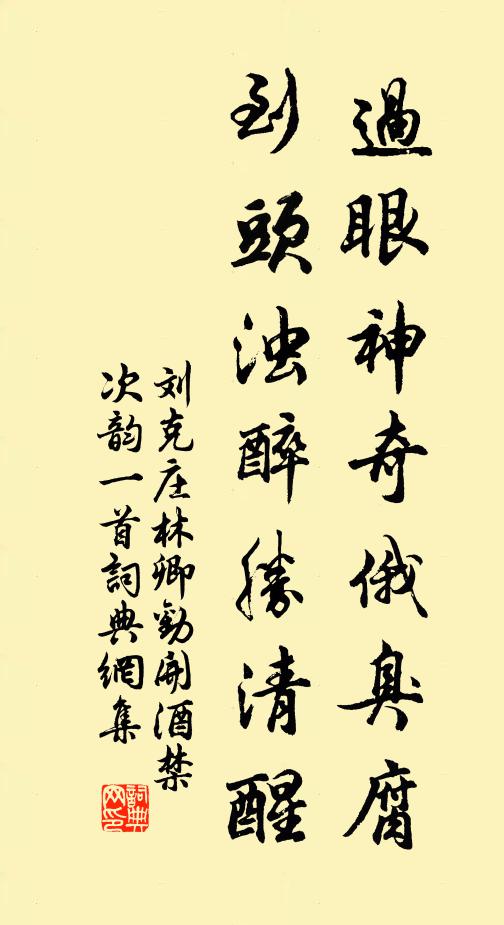 過眼神奇俄臭腐
到頭浊醉勝清醒
刘克庄林卿勸開酒禁
次韵一首詞典網集
詞典网印